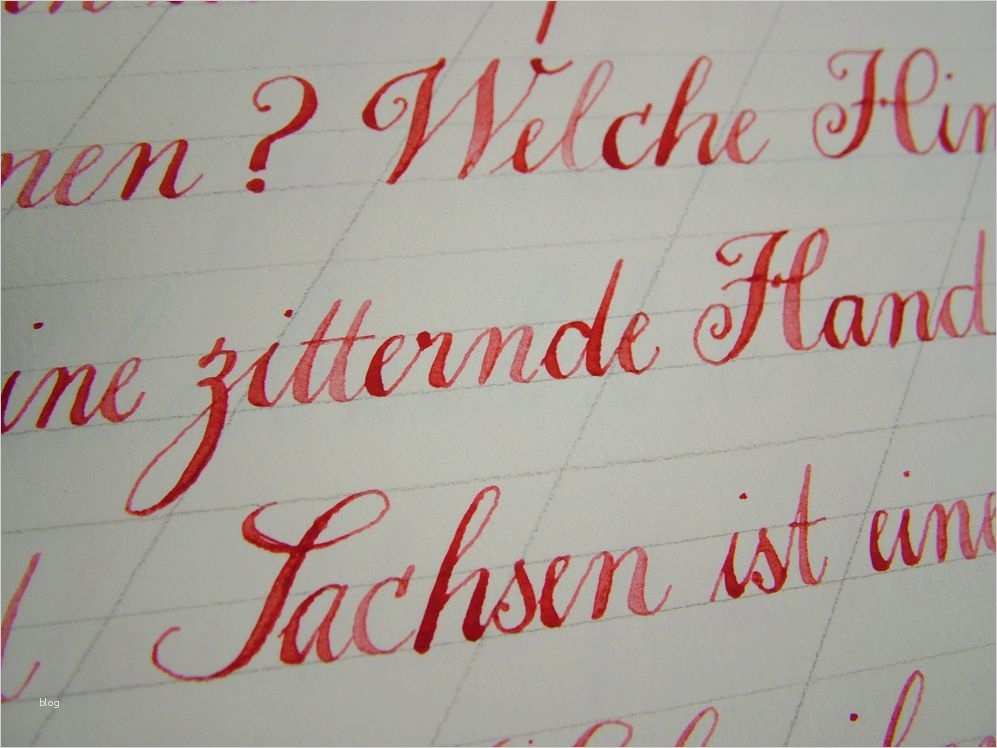 nen ? Welche Hin
ine zitternde Hand
Sachsen ist eine
blog